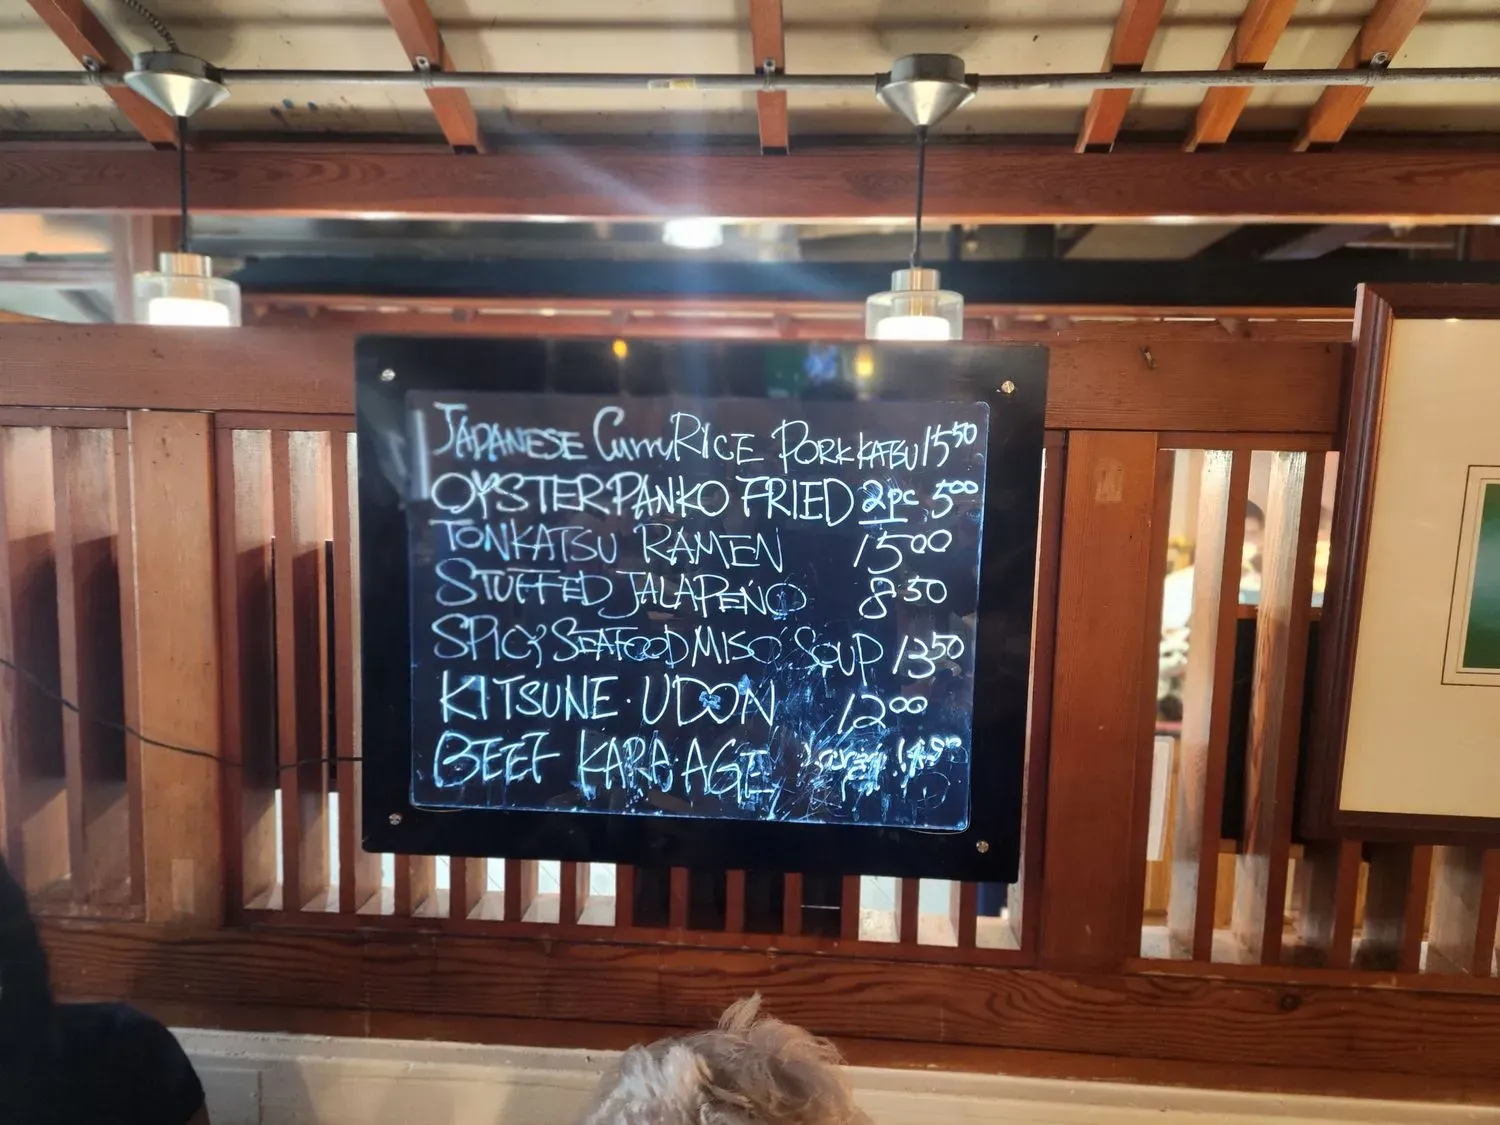 JAPANESE Curry RICE PORK KATSU 15.50
OYSTER PANKO FRIED 2pc 5.00
TONKATSU RAMEN 15.00
STUFFED JALAPEÑO 8.50
SPICY SEAFOOD MISO SOUP 13.50
KITSUNE · UDON 12.00
BEEF KARA·AGE